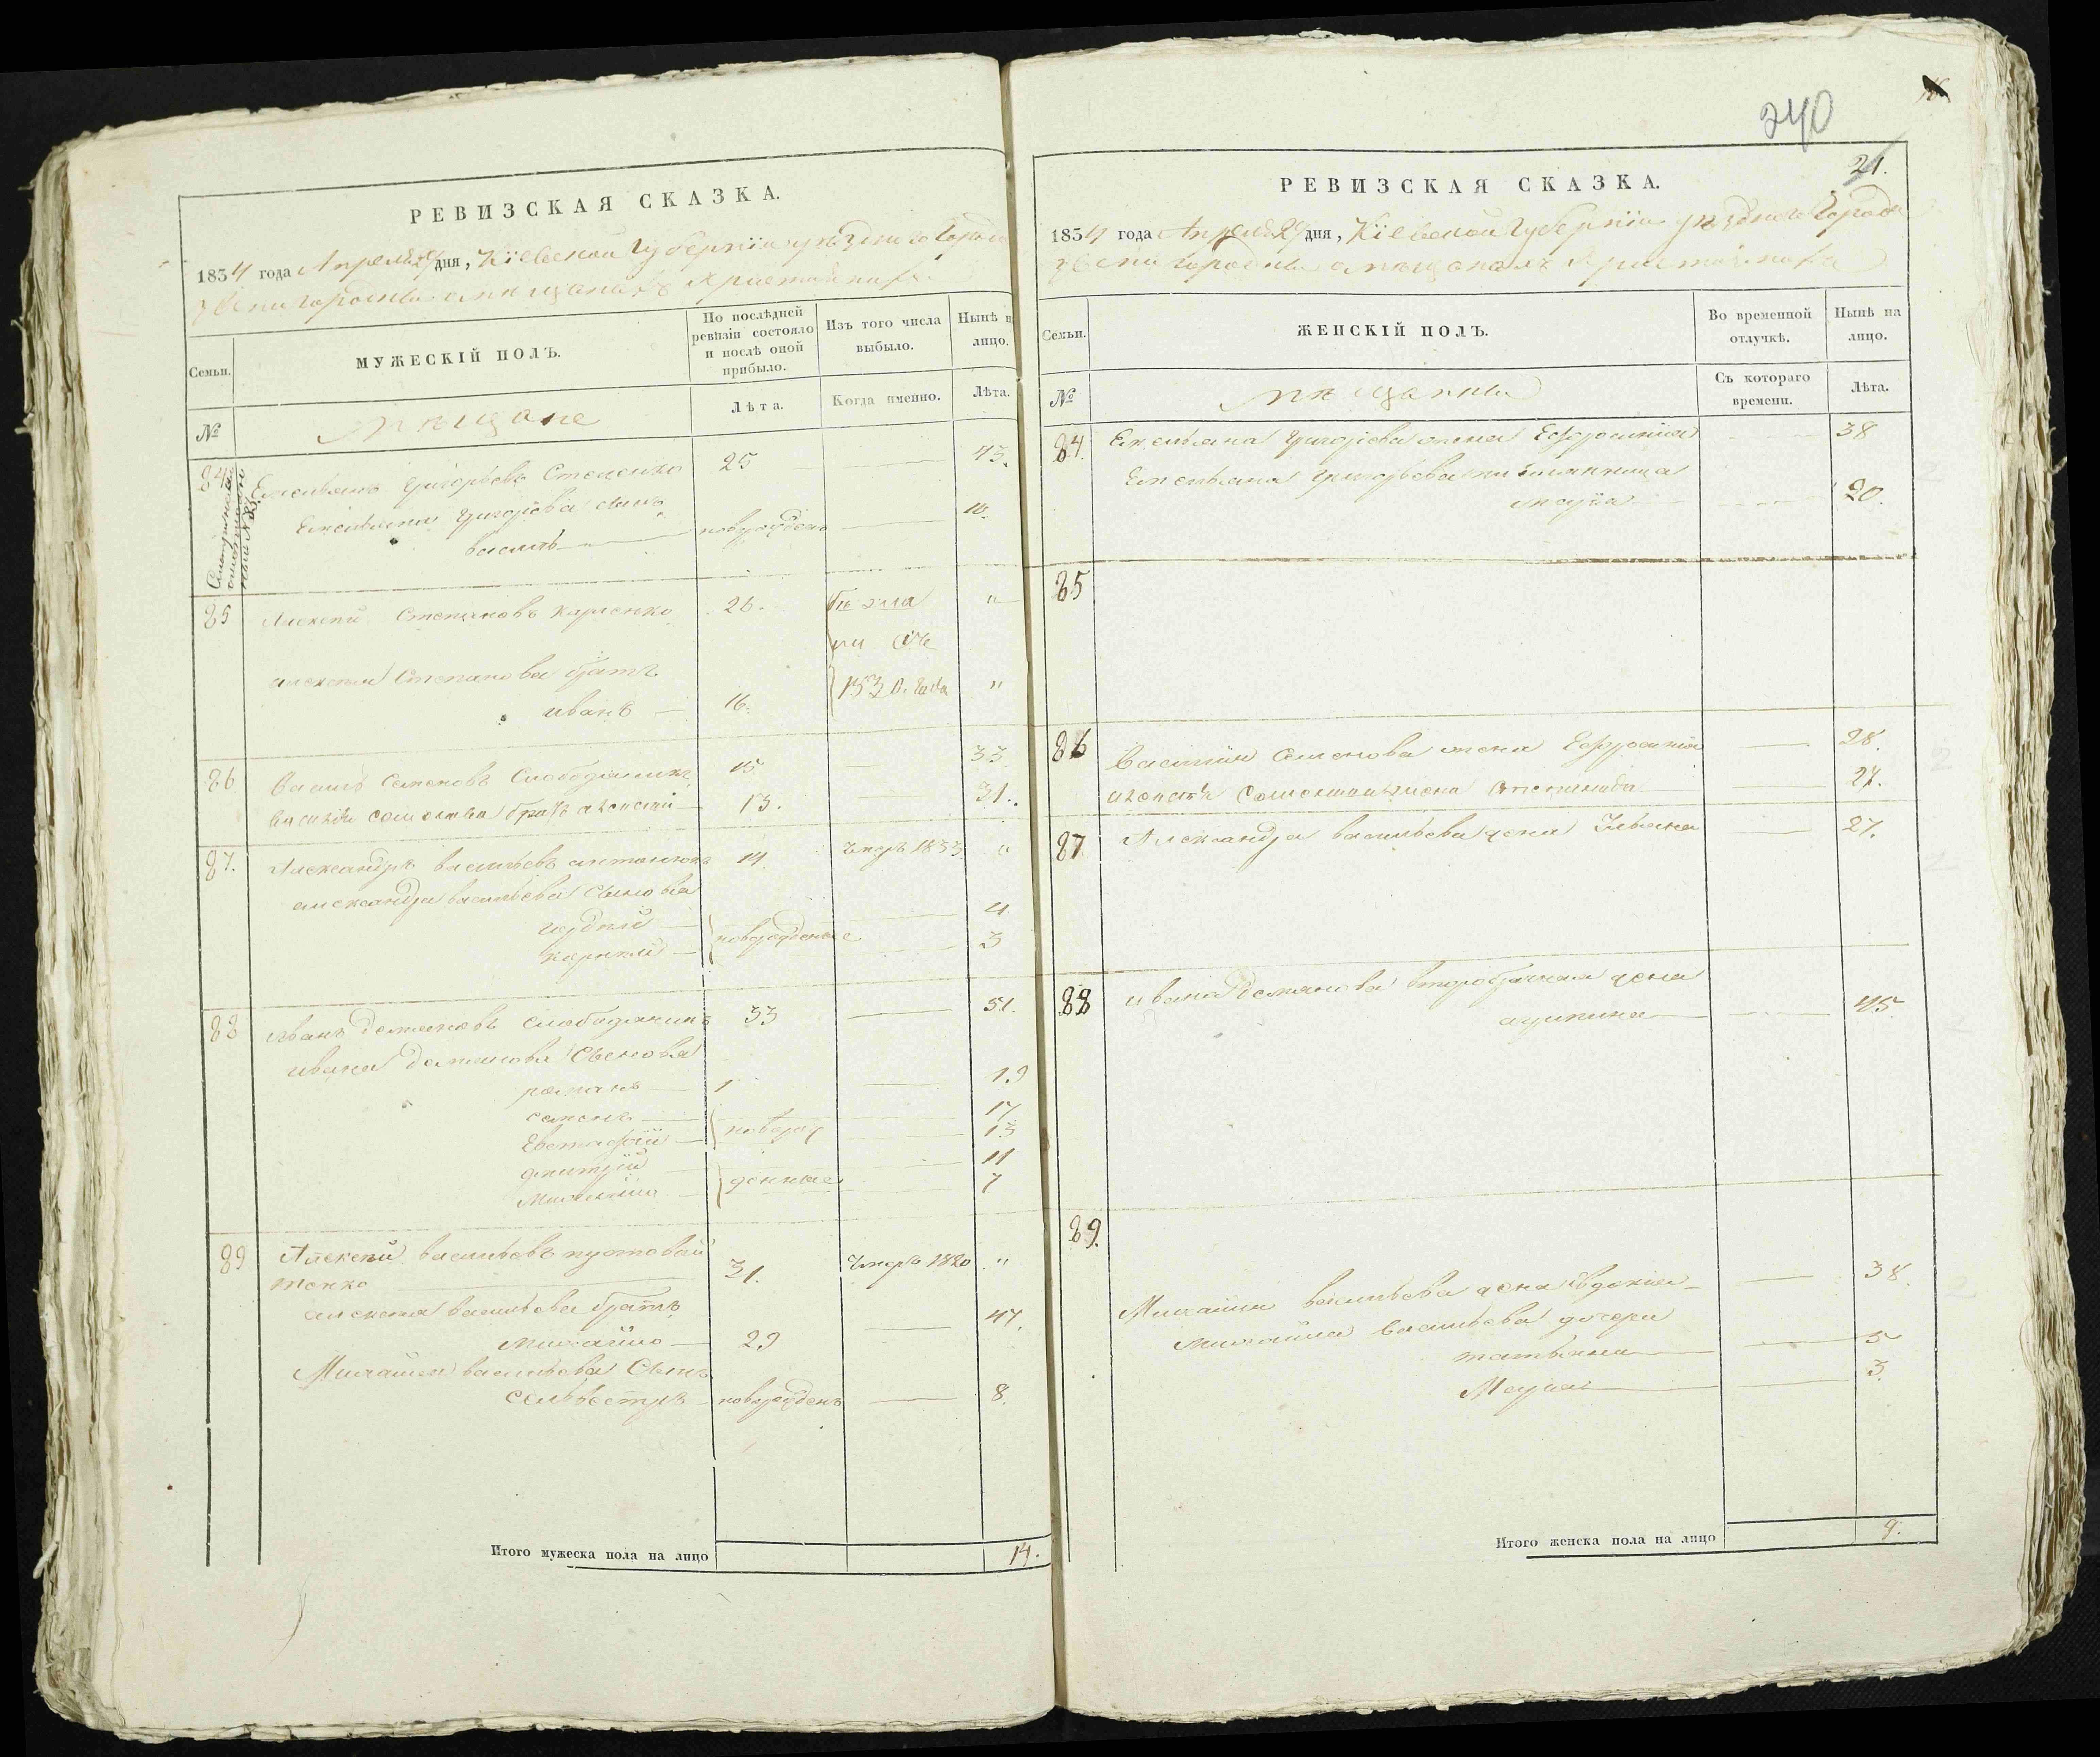 РЕВИЗСКАЯ СКАЗКА.
1834 года Апреля 29 дня, Кіевской Губерніи уѣзднаго Города
Звенигородки о мѣщанахъ Христіянахъ
Семьи.
МУЖЕСКІЙ ПОЛЪ.
По послѣдней ревизіи состояло и послѣ оной прибыло.
Изъ того числа выбыло.
Нынѣ н лицо.
№
мѣщане
Лѣта.
Когда именно.
Лѣта.
84 Емельянъ Григорьевъ Стеценко 25 43.
Емельяна Григорьева сынъ
василь новорожденъ 10.
85 Алексѣй Степановъ Карпенко 26. бѣжа "
ли съ
алексѣя Степанова братъ 1832. года
иванъ 16. "
86 Василь Семеновъ Слободяникъ 15 33
Василія Семенова братъ алексѣй 13. 31.
87. Александръ васильевъ антонюкъ 14 умеръ 1833 "
александра васильева сыновья
гордѣй 4
карпъ новорожденные 3
88 Иванъ Демяновъ слободяникъ 33 51.
ивана Демянова сыновья
романъ 1 19
семенъ 17
Евстафій новорож 13
дмитрій 11
михайло денные 7
89 Алексѣй васильевъ пустовой 31. умеръ 1820 "
тенко
алексѣя васильева братъ
михайло 29 47.
Михайла васильева сынъ
селивестръ новорожденъ 8.
Итого мужеска пола на лицо 14.
240
21.
РЕВИЗСКАЯ СКАЗКА.
1834 года Апреля 29 дня, Кіевской Губерніи уѣзднаго Города
Звенигородки о мѣщанахъ Христіянахъ
Семьи.
ЖЕНСКІЙ ПОЛЪ.
Во временной отлучкѣ.
Нынѣ на лицо.
№
мѣщанки
Съ котораго времени.
Лѣта.
84. Емельяна Григорьева жена Ефросинія 38
Емельяна Григорьева племянница
марѳа 20.
85
86 Василія Семенова жена Ефросинія 28.
алексѣя Семенова жена Степанида 27.
87 Александра васильева жена Ульяна 27.
88 ивана Демянова второбрачная жена
акулина 45.
89.
Михайла васильева жена Евдокія 38.
михайла васильева дочери
татьяна 5
Марія 3.
Итого женска пола на лицо 9.